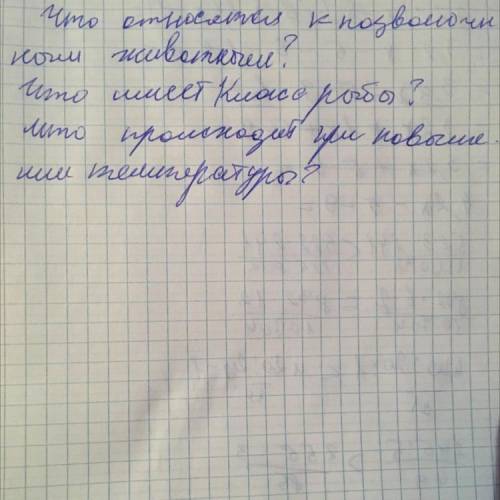 Что относятся к позвоноч
ным животным?
Что имеет Класс рыбы?
Что происходит при повыше
нии температуры?